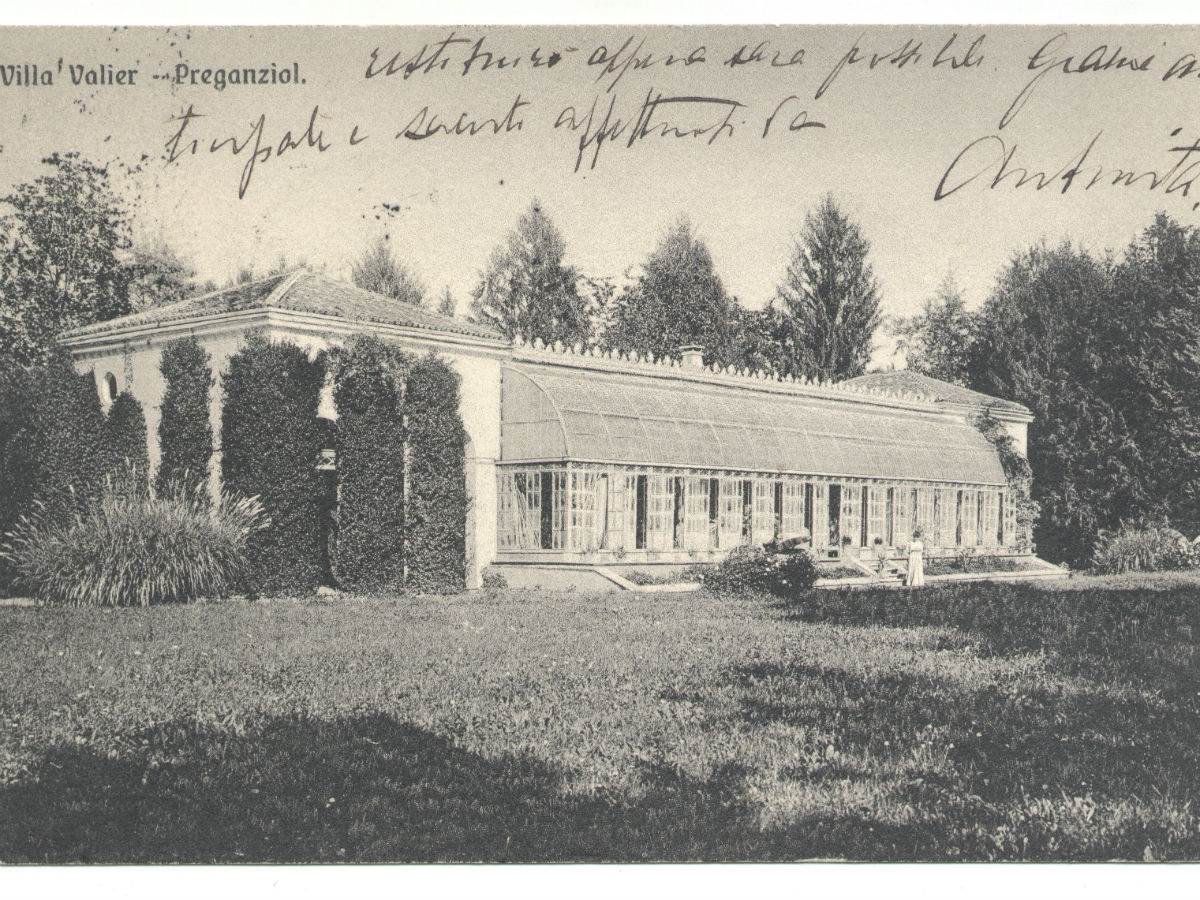 Villa Valier - Preganziol.
restituirò appena sarà possibile. Grazie an
ticipate e saluti affettuosi da
Antonietta